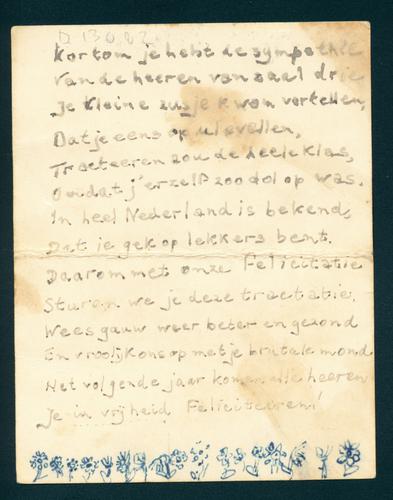 Kortom je hebt de sympathie
Van de heeren van zaal drie
Je kleine zusje kwam vertellen,
Dat je eens op ulevellen,
Tracteeren zou de heele klas,
Omdat j'erzelf zoo dol op was.
In heel Nederland is bekend,
Dat je gek op lekkers bent.
Daarom met onze Felicitatie
Sturen we je deze tractatie.
Wees gauw weer beter en gezond
En vroolijk ons op met je brutale mond
Het volgende jaar komen alle heeren
Je in vrijheid Feliciteeren!